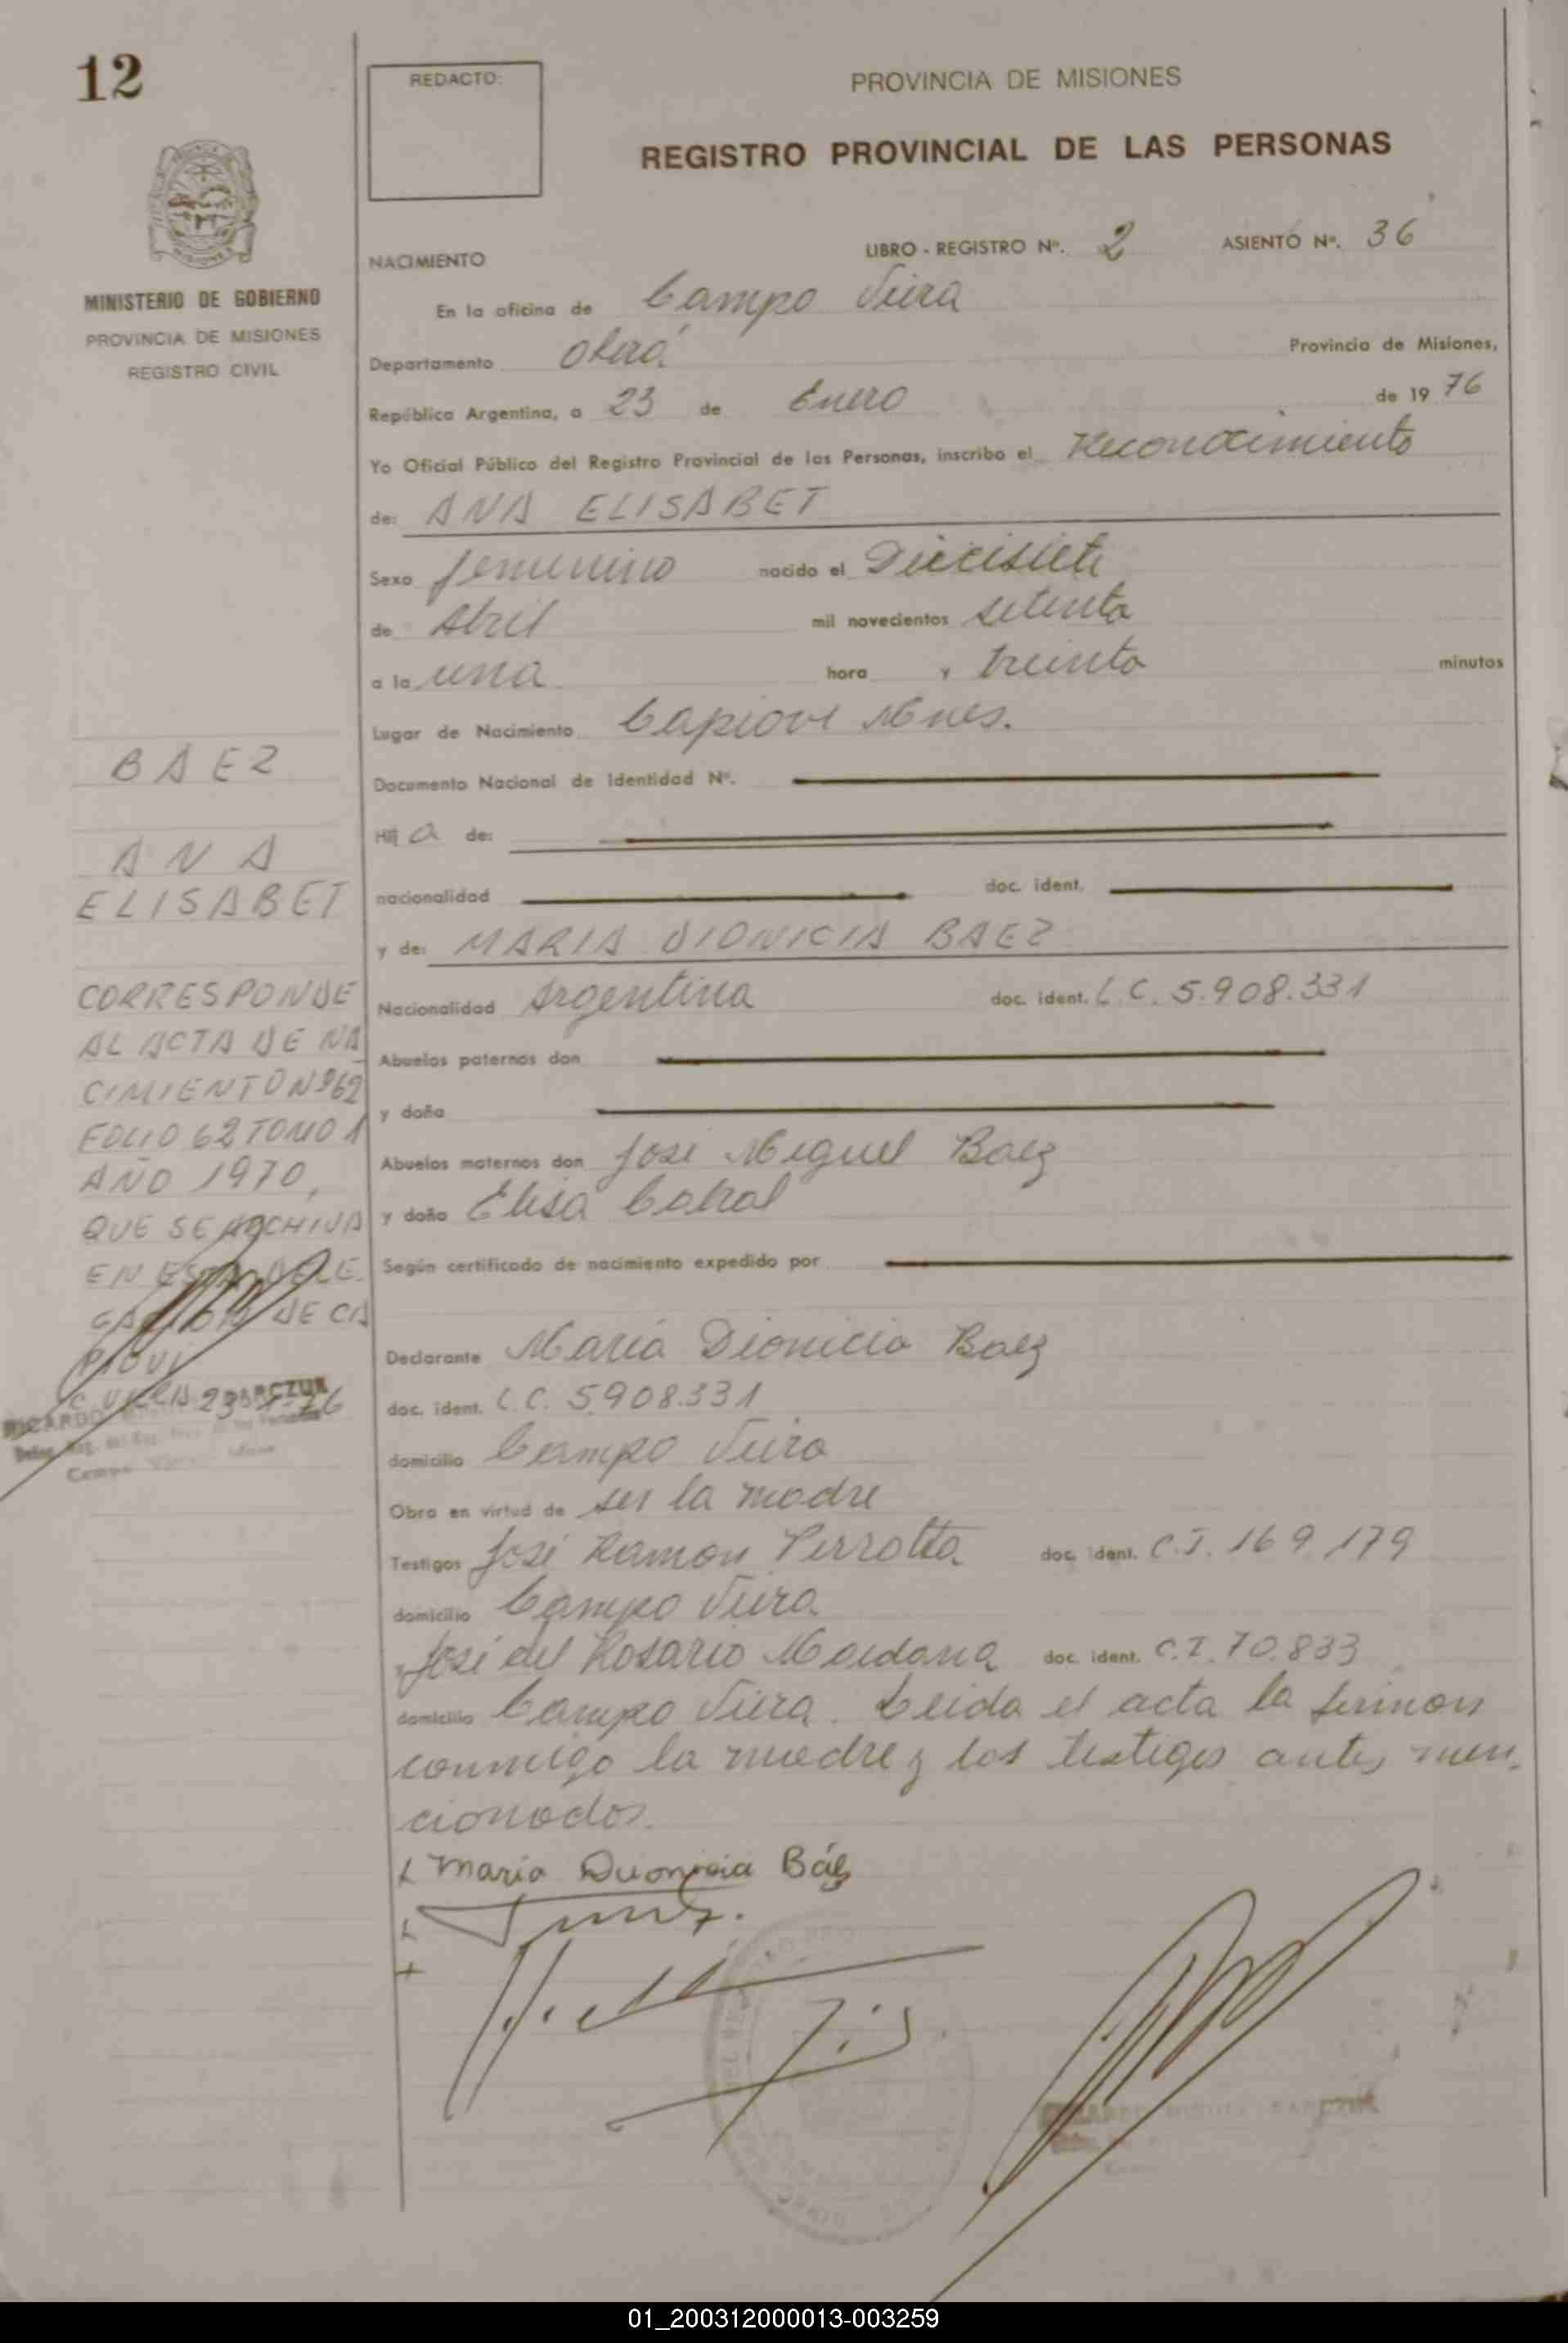 12
REDACTO:
PROVINCIA DE MISIONES
REGISTRO PROVINCIAL DE LAS PERSONAS
MINISTERIO DE GOBIERNO
PROVINCIA DE MISIONES
REGISTRO CIVIL
NACIMIENTO
LIBRO - REGISTRO Nº. 2 ASIENTO Nº. 36
En la oficina de Campo Viera
Departamento Oberá Provincia de Misiones,
República Argentina, a 23 de Enero de 19 76
Yo Oficial Público del Registro Provincial de las Personas, inscribo el Reconocimiento
de: ANA ELISABET
Sexo femenino nacido el Diecisiete
de Abril mil novecientos setenta
a la una hora y treinta minutos
Lugar de Nacimiento Capiovi Mnes.
Documento Nacional de Identidad Nº.
Hij a de:
nacionalidad doc. ident.
y de: MARIA DIONICIA BAEZ
Nacionalidad Argentina doc. ident. L.C. 5.908.331
Abuelos paternos don
y doña
Abuelos maternos don José Miguel Baez
y doña Elisa Cabral
Según certificado de nacimiento expedido por
Declarante María Dionicia Baez
doc. ident. L.C. 5.908.331
domicilio Campo Viera
Obra en virtud de ser la madre
Testigos José Ramon Perrotta doc. ident. C.I. 169.179
domicilio Campo Viera
y José del Rosario Maidana doc. ident. C.I. 70.833
domicilio Campo Viera. Leida el acta la firman
conmigo la madre y los testigos antes men-
cionados.
Maria Dionicia Báez
BAEZ
ANA
ELISABET
CORRESPONDE
AL ACTA DE NA
CIMIENTO Nº 62
FOLIO 62 TOMO 1
AÑO 1970,
QUE SE ARCHIVA
EN ESTA DELE
GACION DE CA
PIOVI
C. VIERA 23-1-76
RICARDO
Campo Viera
01_200312000013-003259